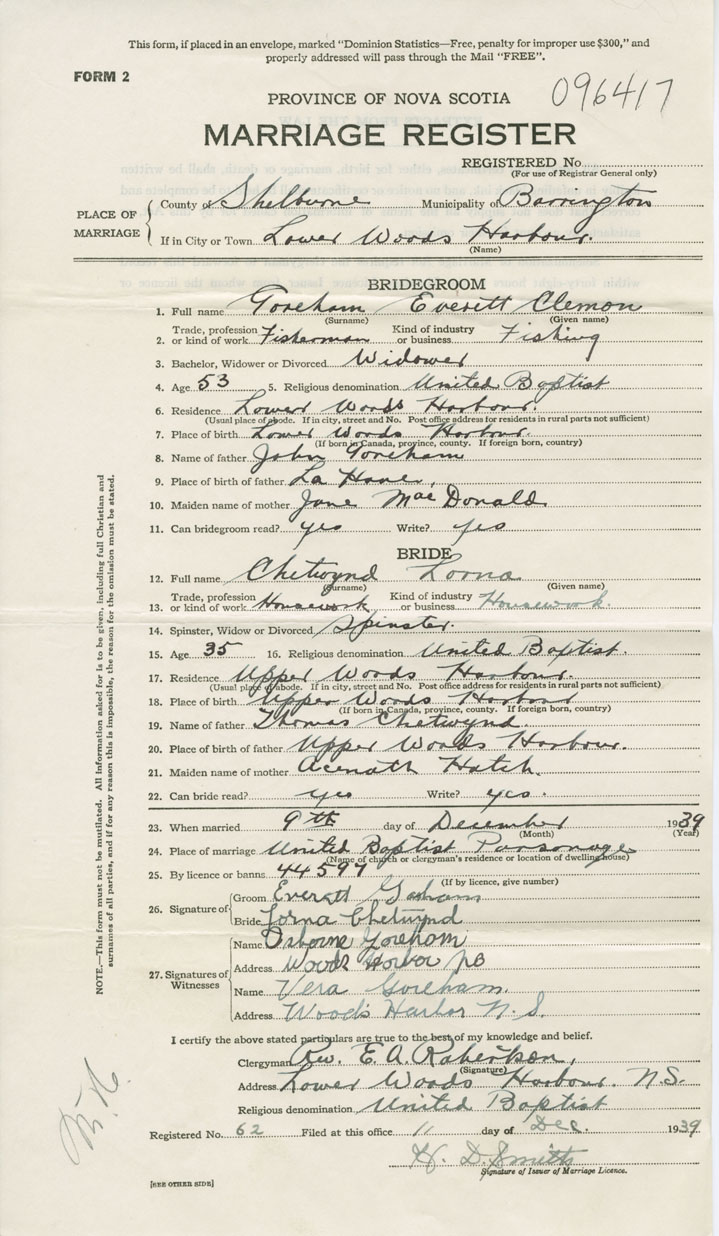 This form, if placed in an envelope, marked "Dominion Statistics—Free, penalty for improper use $300," and
properly addressed will pass through the Mail "FREE".
FORM 2
096417
PROVINCE OF NOVA SCOTIA
MARRIAGE REGISTER
REGISTERED No.
(For use of Registrar General only)
PLACE OF MARRIAGE
County of Shelburne Municipality of Barrington
If in City or Town Lower Woods Harbour.
(Name)
BRIDEGROOM
1. Full name Goreham Everett Clemon
(Surname) (Given name)
2. Trade, profession or kind of work Fisherman Kind of industry or business Fishing
3. Bachelor, Widower or Divorced Widower
4. Age 53 5. Religious denomination United Baptist
6. Residence Lower Woods Harbour.
(Usual place of abode. If in city, street and No. Post office address for residents in rural parts not sufficient)
7. Place of birth Lower Woods Harbour.
(If born in Canada, province, county. If foreign born, country)
8. Name of father John Goreham
9. Place of birth of father La Have,
10. Maiden name of mother Jane MacDonald
11. Can bridegroom read? yes Write? yes
BRIDE
12. Full name Chetwynd Lorna
(Surname) (Given name)
13. Trade, profession or kind of work Housework Kind of industry or business Housework.
14. Spinster, Widow or Divorced Spinster.
15. Age 35 16. Religious denomination United Baptist.
17. Residence Upper Woods Harbour.
(Usual place of abode. If in city, street and No. Post office address for residents in rural parts not sufficient)
18. Place of birth Upper Woods Harbour
(If born in Canada, province, county. If foreign born, country)
19. Name of father Thomas Chetwynd.
20. Place of birth of father Upper Woods Harbour.
21. Maiden name of mother Acenath Hatch.
22. Can bride read? yes Write? yes.
23. When married 9th day of December 1939
(Month) (Year)
24. Place of marriage United Baptist Parsonage
(Name of church or clergyman's residence or location of dwelling house)
25. By licence or banns 44597
(If by licence, give number)
26. Signature of
Groom Everett Goreham
Bride Lorna Chetwynd
27. Signatures of Witnesses
Name Osborne Goreham
Address Woods Harbor NS
Name Vera Goreham.
Address Woods Harbor N.S.
I certify the above stated particulars are true to the best of my knowledge and belief.
Clergyman Rev. E. A. Robertson,
(Signature)
Address Lower Woods Harbour. N.S.
Religious denomination United Baptist
Registered No. 62 Filed at this office 11 day of Dec. 1939
H. D. Smith
Signature of Issuer of Marriage Licence.
[SEE OTHER SIDE]
NOTE.—This form must not be mutilated. All information asked for is to be given, including full Christian and
surnames of all parties, and if for any reason this is impossible, the reason for the omission must be stated.